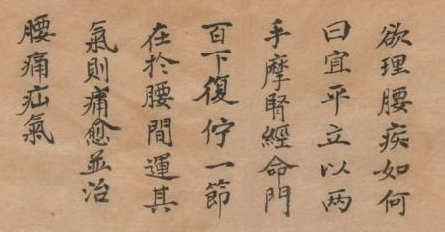 欲理腰疾如何
曰宜平立以两
手摩腎經命門
百下復佇一節
在於腰間運其
氣則痛愈並治
腰痛疝氣